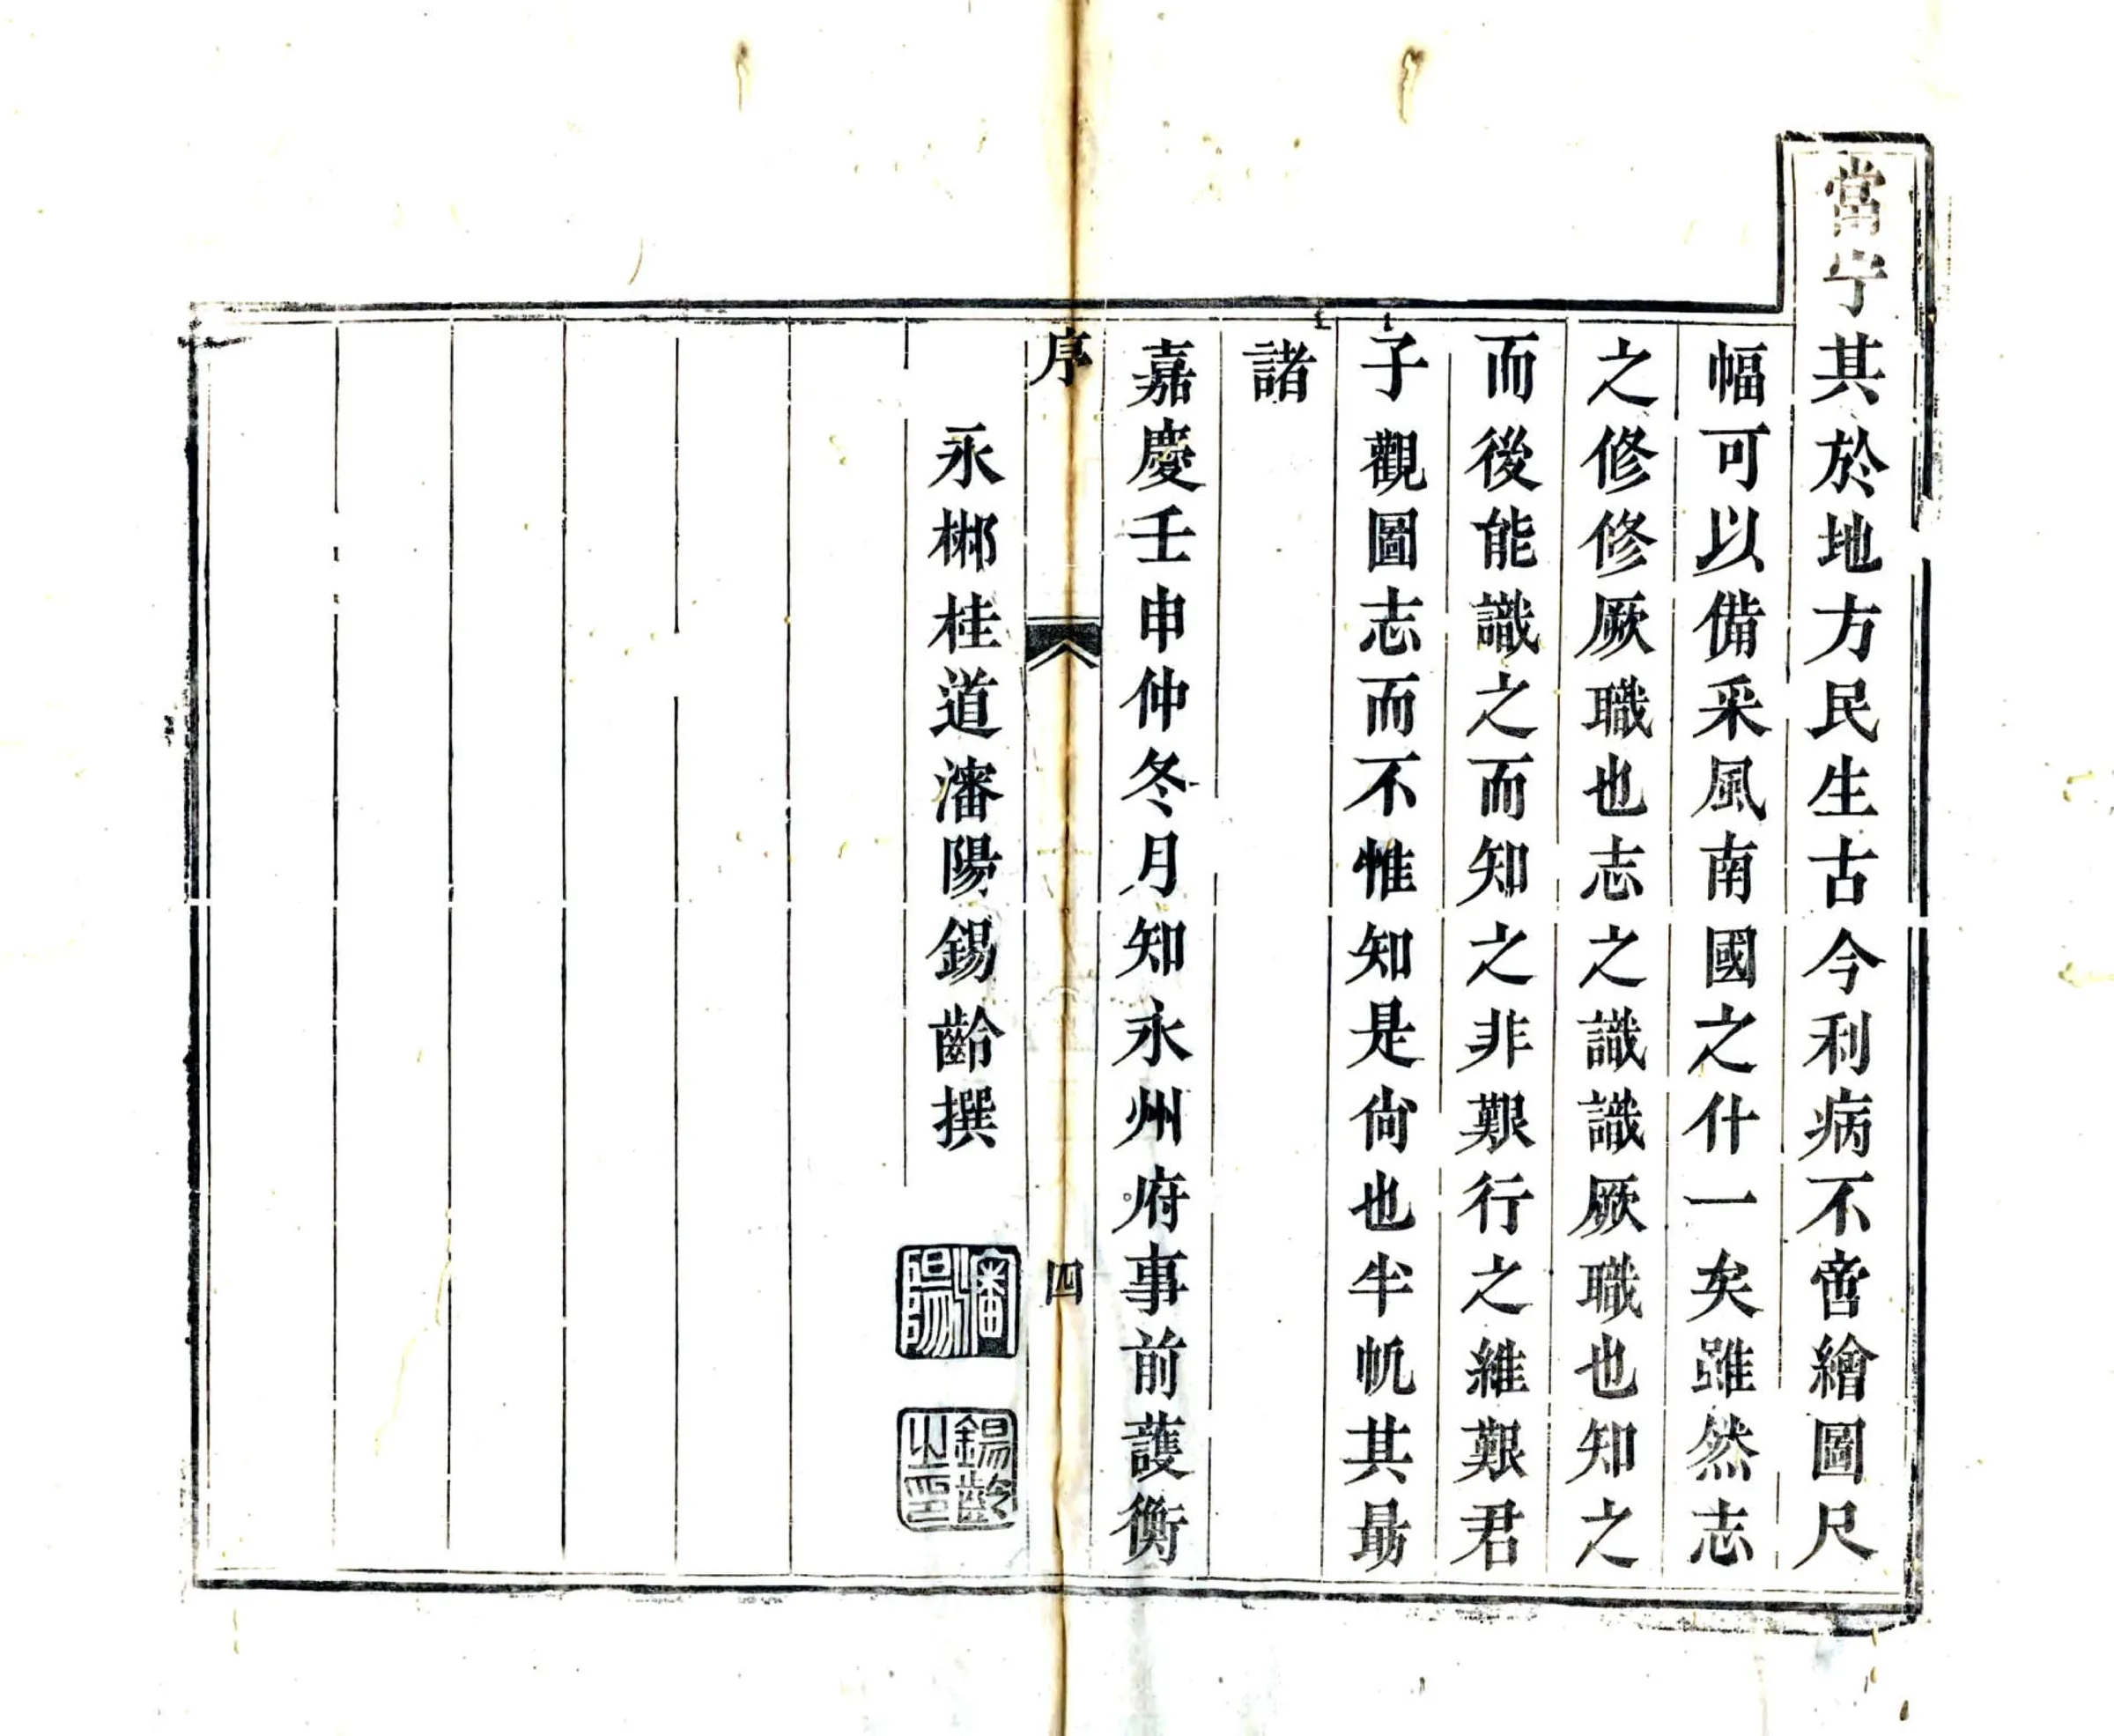 當宁其於地方民生古今利病不啻繪圖尺
幅可以備采風南國之什一矣雖然志
之修修厥職也志之識識厥職也知之
而後能識之而知之非艱行之維艱君
子觀圖志而不惟知是尚也半帆其勗
諸
嘉慶壬申仲冬月知永州府事前護衡
序
四
永郴桂道瀋陽錫齡撰
瀋陽
錫齡之印